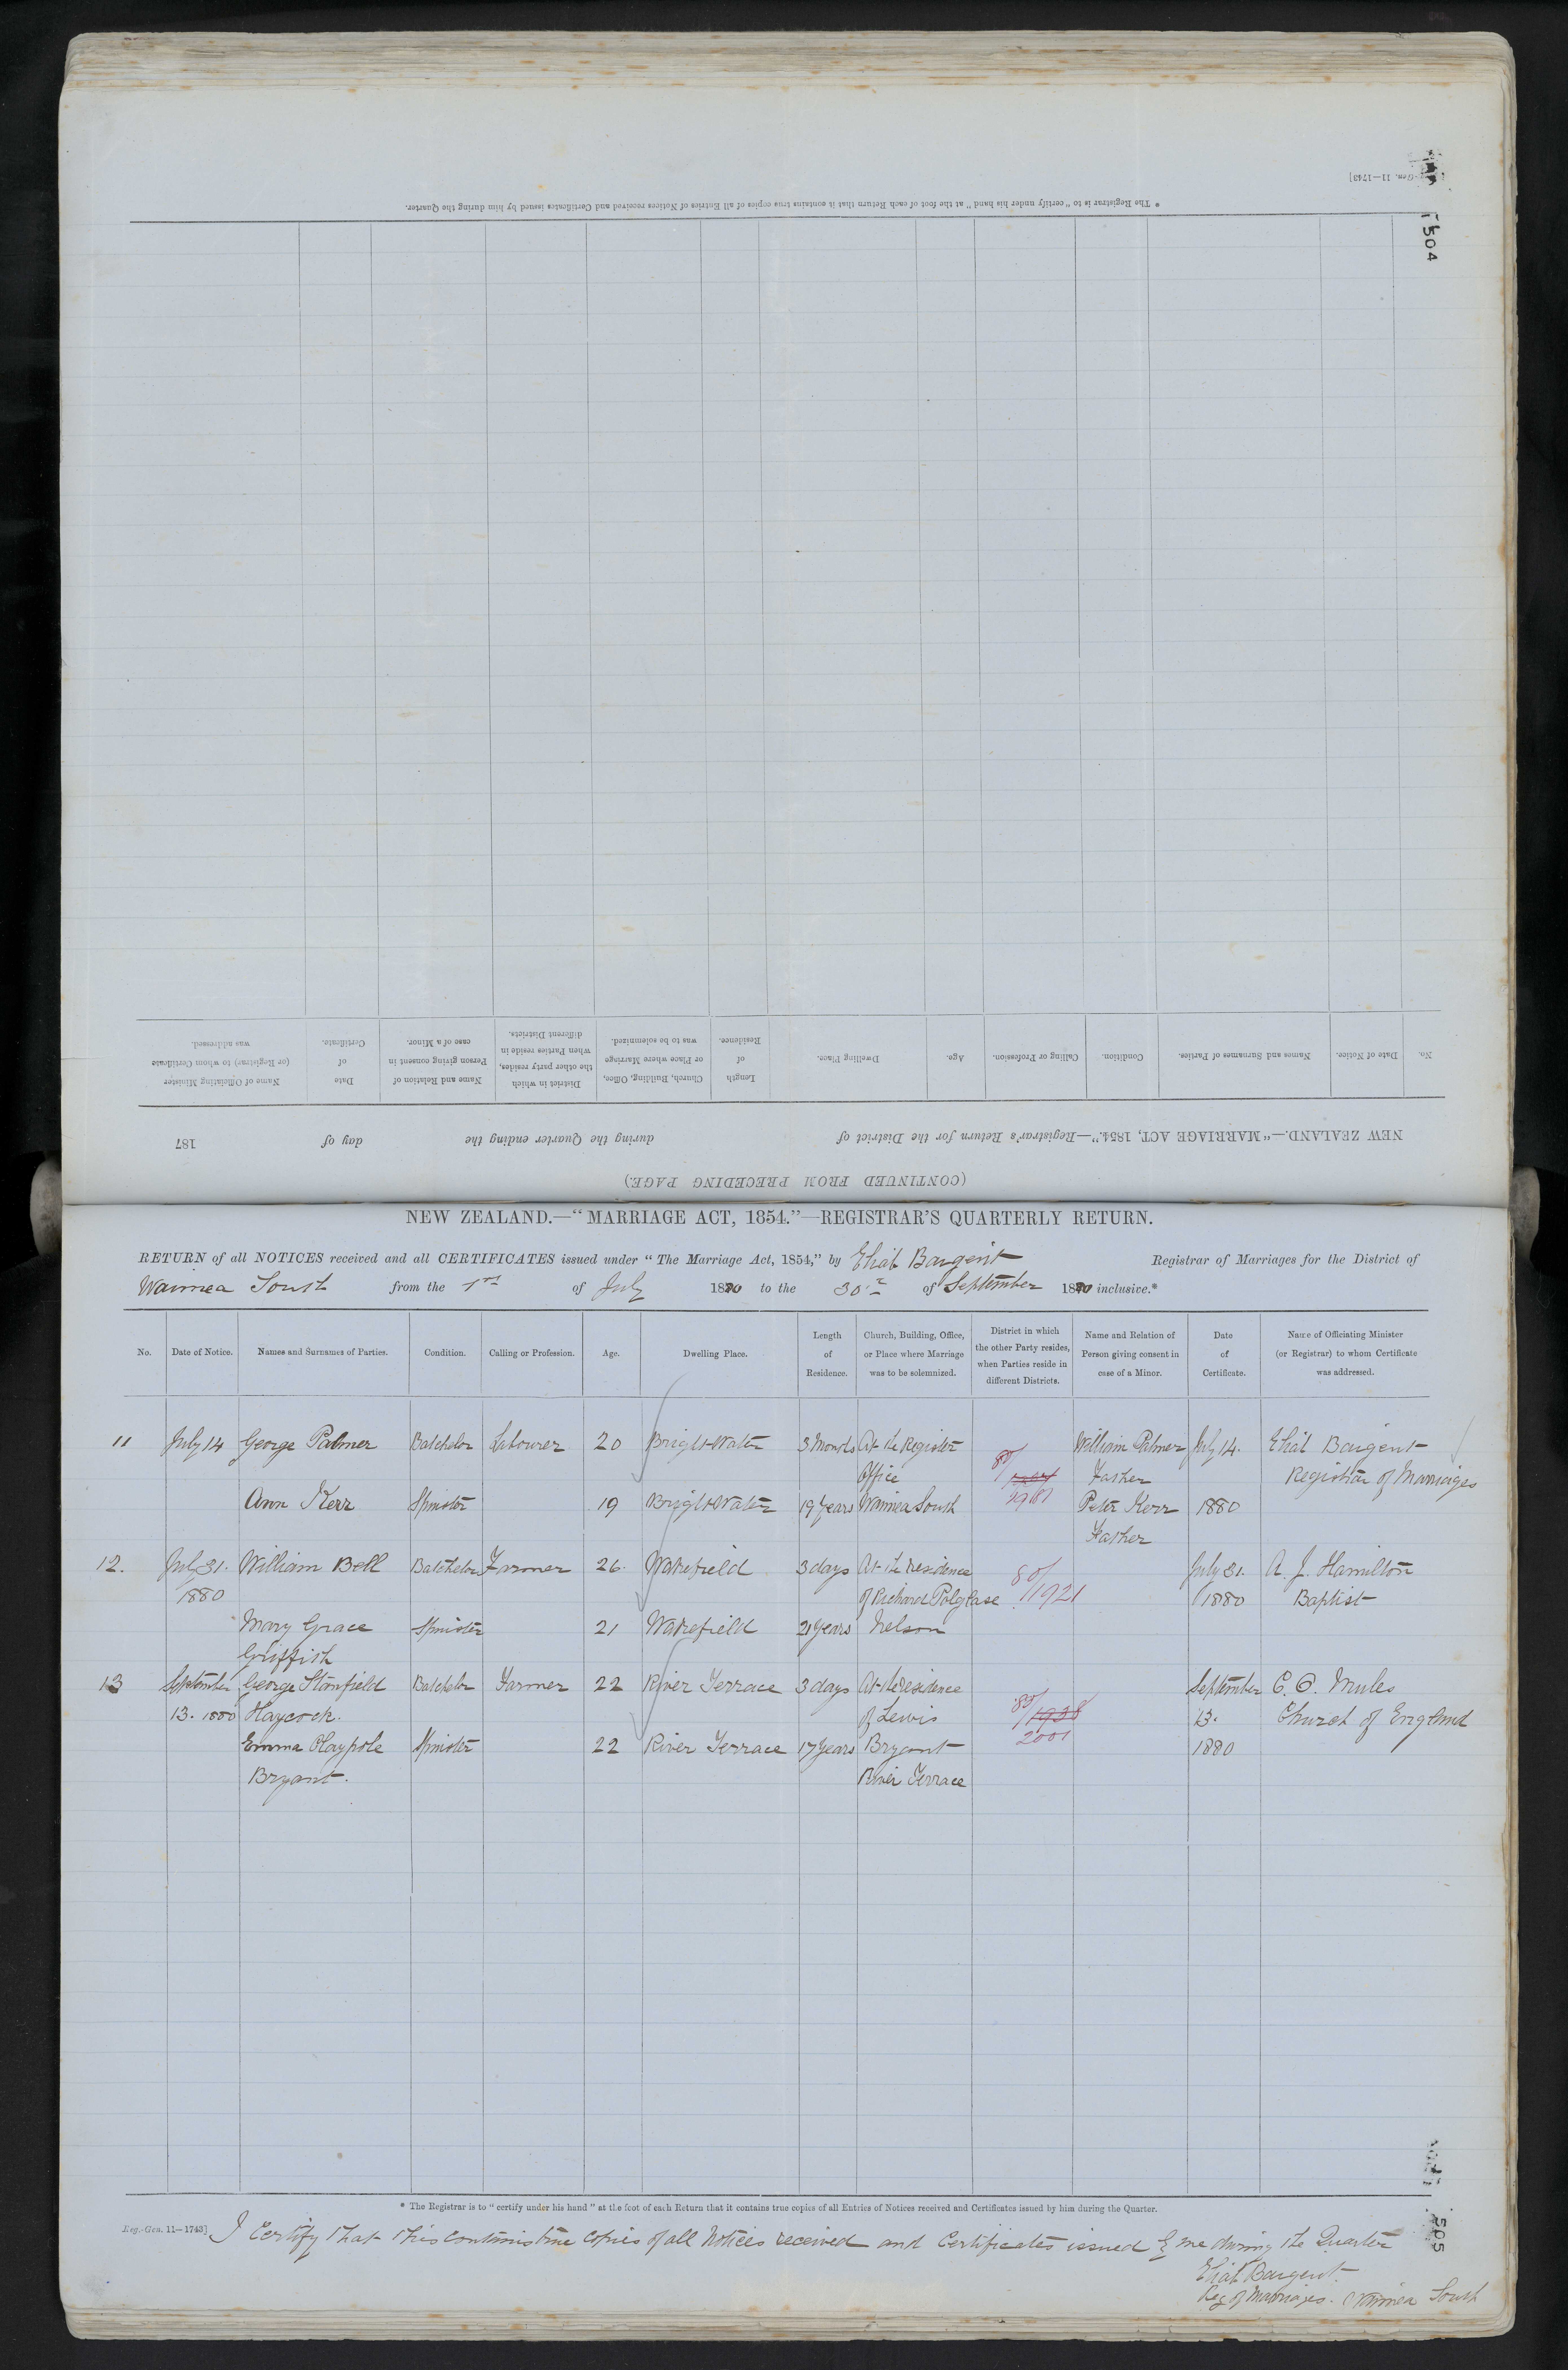 Reg.-Gen. 11—1743]
504
* The Registrar is to "certify under his hand" at the foot of each Return that it contains true copies of all Entries of Notices received and Certificates issued by him during the Quarter.
(CONTINUED FROM PRECEDING PAGE.)
NEW ZEALAND.—"MARRIAGE ACT, 1854."—Registrar's Return for the District of during the Quarter ending the day of 187
No. Date of Notice. Names and Surnames of Parties. Condition. Calling or Profession. Age. Dwelling Place. Length of Residence. Church, Building, Office, or Place where Marriage was to be solemnized. District in which the other party resides, when Parties reside in different Districts. Name and Relation of Person giving consent in case of a Minor. Date of Certificate. Name of Officiating Minister (or Registrar) to whom Certificate was addressed.
NEW ZEALAND.—"MARRIAGE ACT, 1854."—REGISTRAR'S QUARTERLY RETURN.
RETURN of all NOTICES received and all CERTIFICATES issued under "The Marriage Act, 1854," by Eliab Baigent Registrar of Marriages for the District of
Waimea South from the 1st of July 1880 to the 30th of September 1880 inclusive.*
No. Date of Notice. Names and Surnames of Parties. Condition. Calling or Profession. Age. Dwelling Place. Length of Residence. Church, Building, Office, or Place where Marriage was to be solemnized. District in which the other Party resides, when Parties reside in different Districts. Name and Relation of Person giving consent in case of a Minor. Date of Certificate. Name of Officiating Minister (or Registrar) to whom Certificate was addressed.
11 July 14 George Palmer Batchelor Labourer 20 BrightWater 3 Months At the Register William Palmer July 14. Eliab Baigent
Office 80/ Father Registrar of Marriages
Ann Kerr Spinster 19 BrightWater 19 years Waimea South 2981 Peter Kerr 1880
Father
12. July 31. William Bell Batchelor Farmer 26. Wakefield 3 days At the residence 80/ July 31. A. J. Hamilton
1880 of Richard Polglase 1921 1880 Baptist
Mary Grace Spinster 21 Wakefield 21 years Nelson
Griffith
13 September George Stanfield Batchelor Farmer 22 River Terrace 3 days At the residence September C. O. Mules
13. 1880 Haycock. of Lewis 80/1938 13. Church of England
Emma Claypole Spinster 22 River Terrace 17 years Bryant 2001 1880
Bryant. River Terrace
* The Registrar is to "certify under his hand" at the foot of each Return that it contains true copies of all Entries of Notices received and Certificates issued by him during the Quarter.
Reg.-Gen. 11—1743] I Certify that this contains true copies of all Notices received and Certificates issued by me during the Quarter
505
Eliab Baigent.
Reg of Marriages. Waimea South